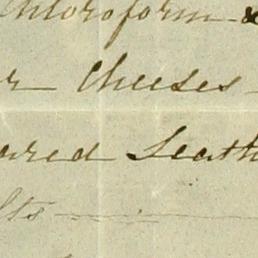 Chloroform &
r Cheeses
ared Leath
lts